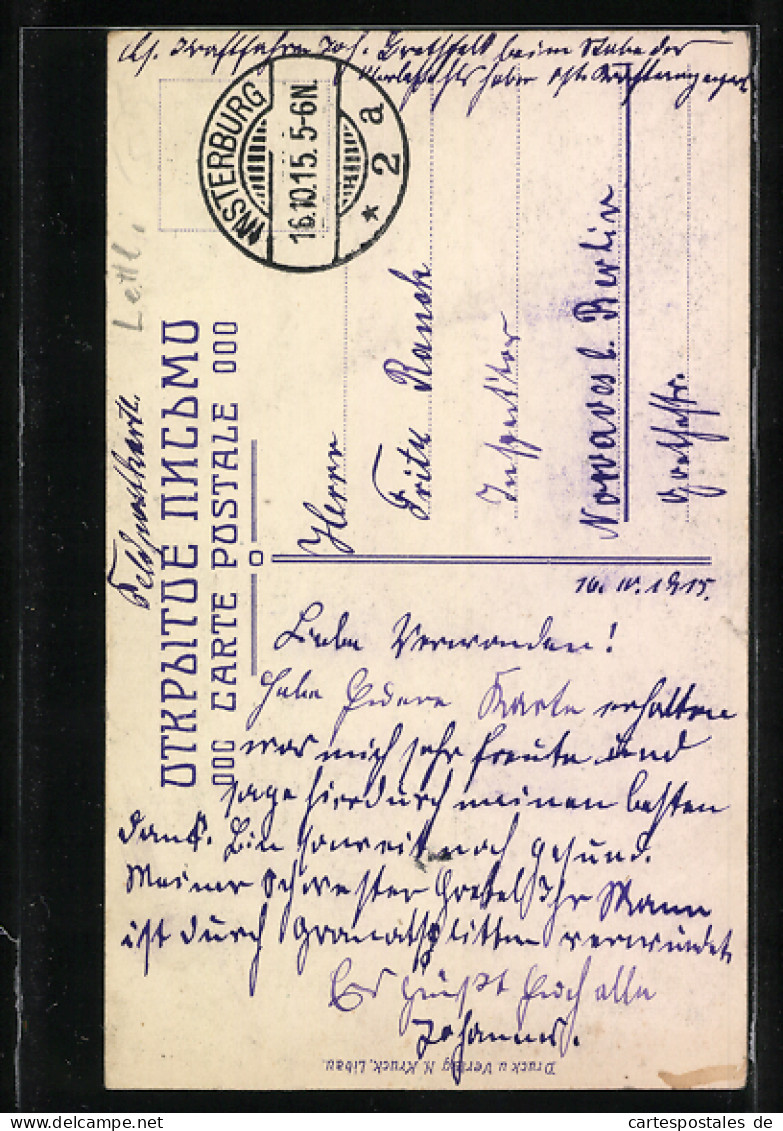 Feldpostkarte.
Lettl.
INSTERBURG
16.10.15. 5-6N.
* 2 a
ОТКРЫТОЕ ПИСЬМО
000 CARTE POSTALE 000
Herrn
Fritz Rauch
Inspektor
Nowawes b. Berlin
Goethestr.
16. 10. 1915.
Liebe Verwanden!
Habe Eure Karte erhalten
was mich sehr freute und
sage hierdurch meinen besten
Dank. Bin soweit noch gesund.
Meiner Schwester Gretel Ihr Mann
ist durch Granatsplitter verwundet
Es grüßt Euch alle
Johannes.
Druck u Verlag N. Kruck, Libau.
cartespostales de